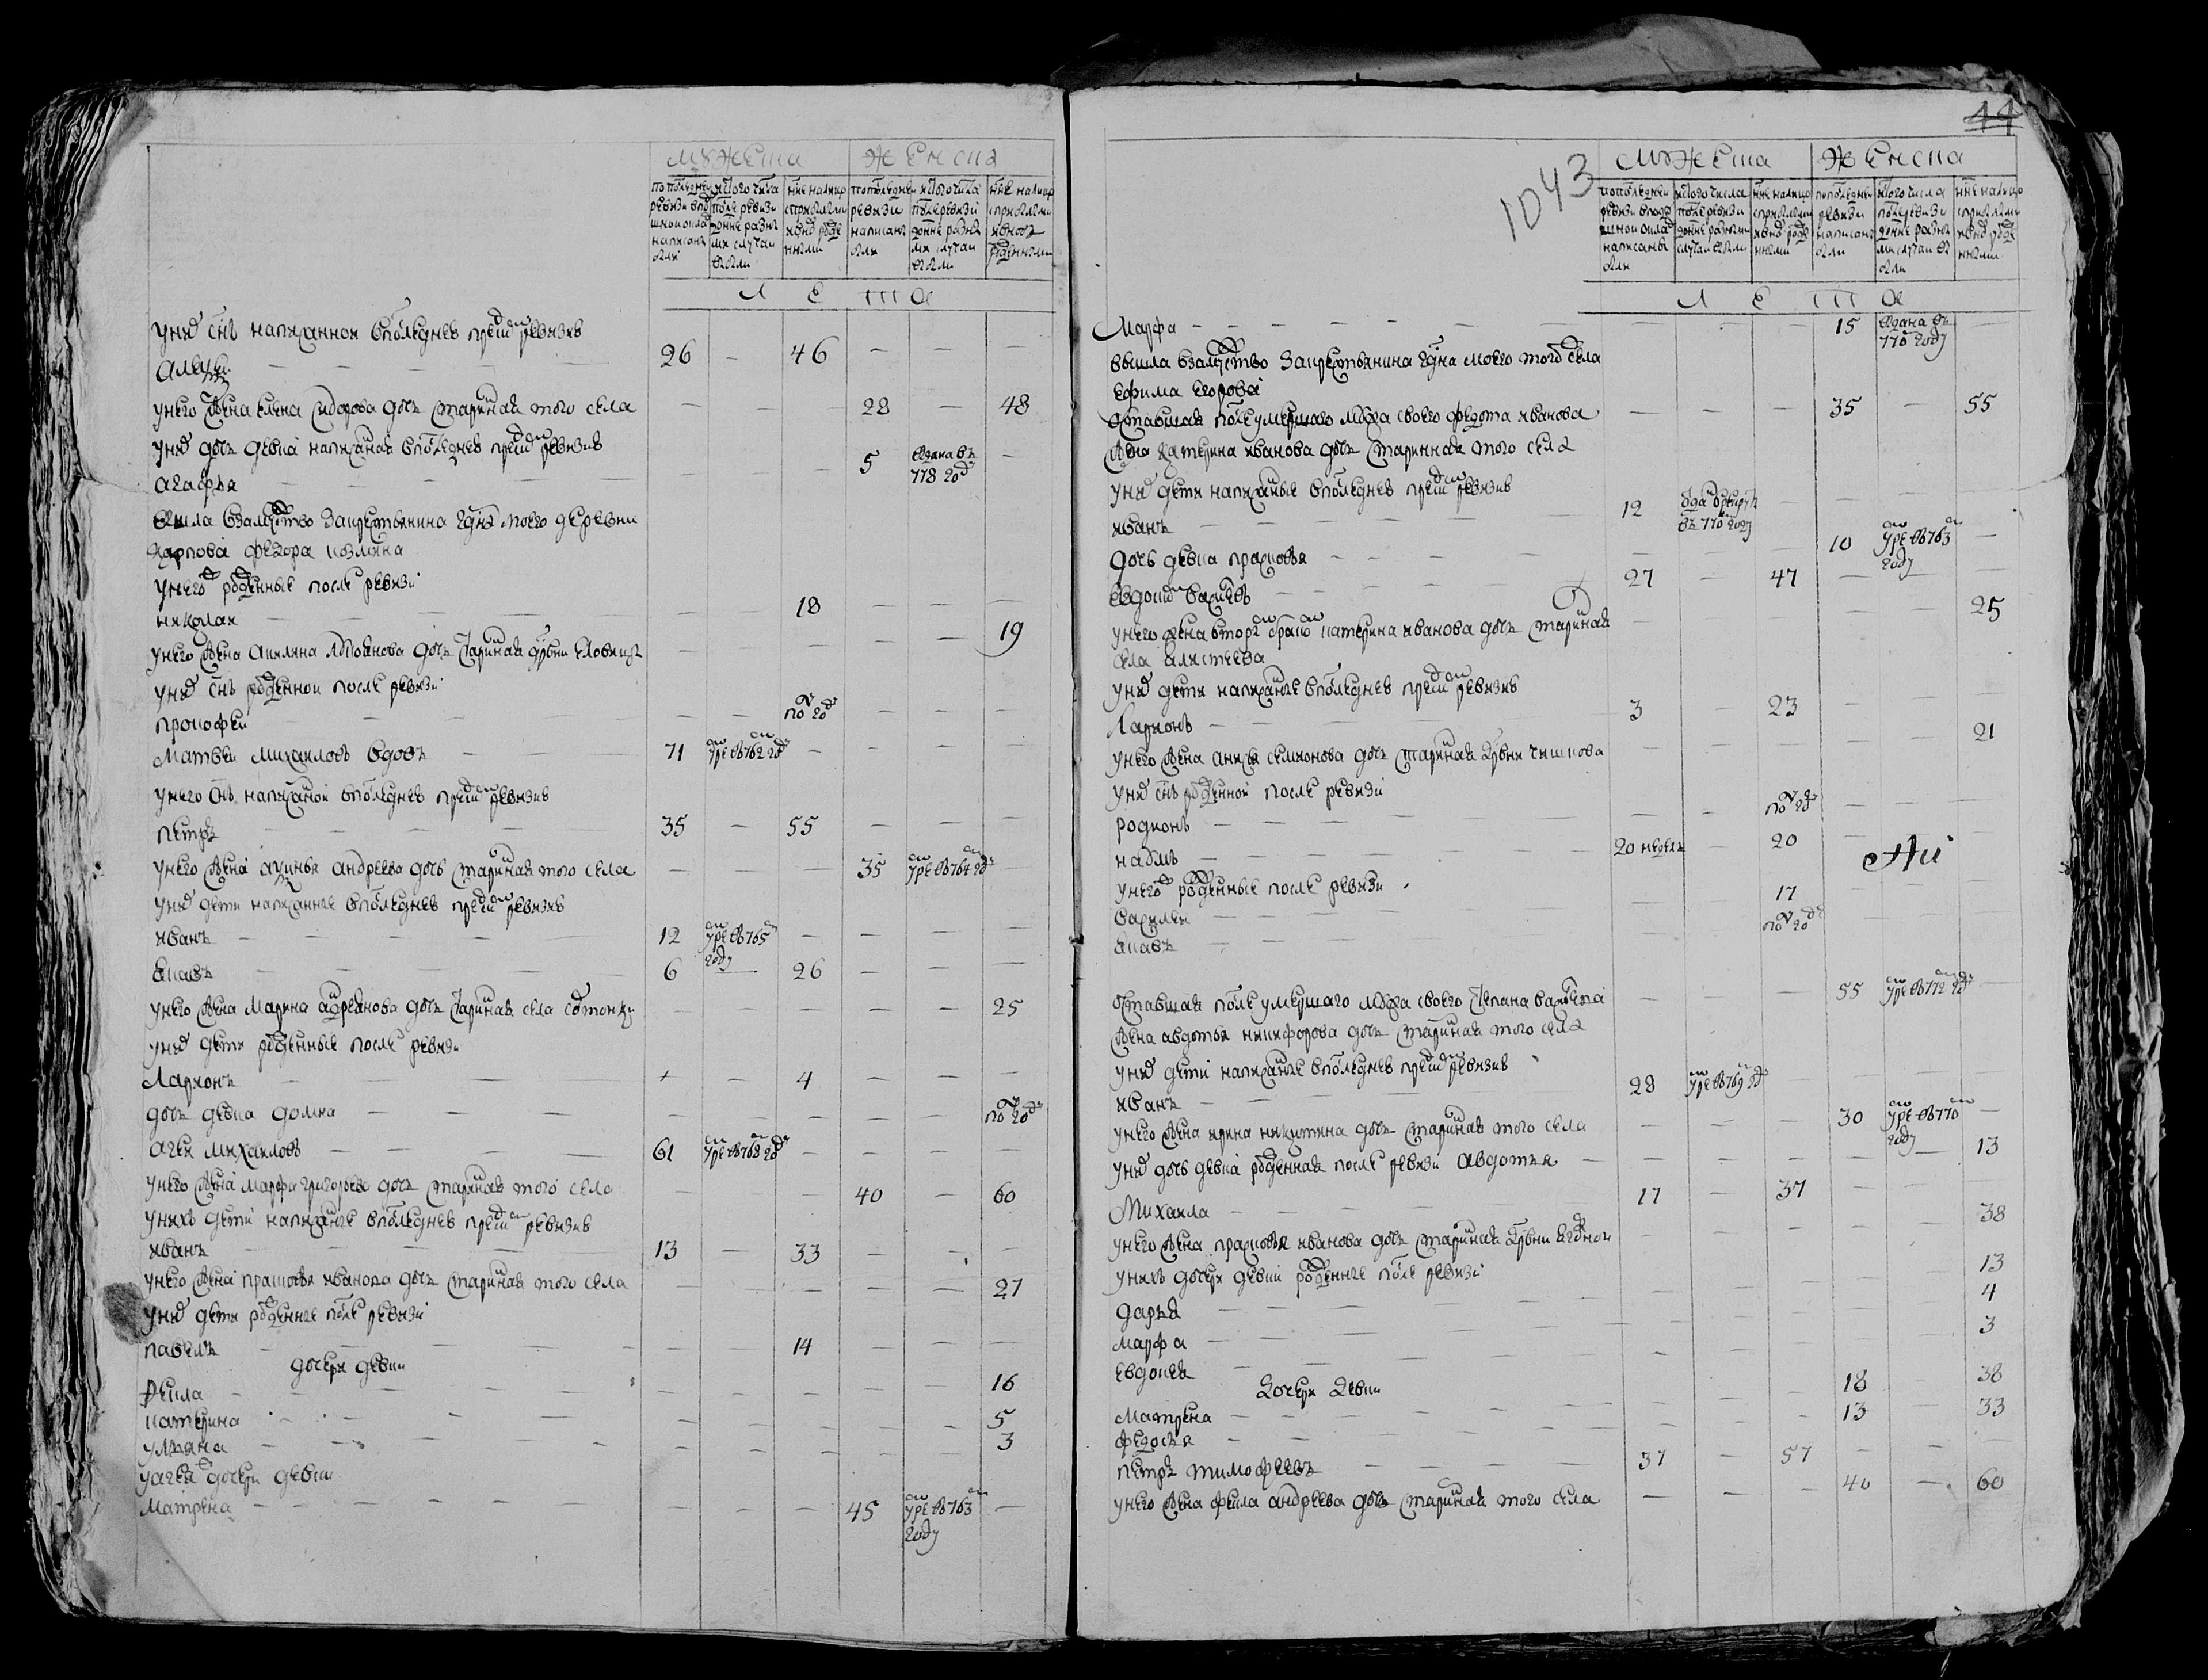 мужеска женска
по последней ревизии в подушной оклад написаны были
из того числа после ревизии до ныне разными случаи выбыли
ныне налицо с прибылыми и вновь рожденными
по последней ревизии написаны были
из того числа после ревизии до ныне разными случаи выбыли
ныне налицо с прибылыми и вновь рожденными
л е т а
у них снъ написанной в последнеѣ пред ревизиѣ
26 — 46 — — —
у него жена елена сидорова дочь старинная того села — — — 28 — 48
у них дочь девка написаная в последнеѣ пред ревизиѣ
агафья — — — 5 выдана въ 778 году —
вышла в замужство за крестьянина моего деревни
карпова федора козмина
у него рожденные после ревизи
николаи — — 18 — — —
у него жена дочь старинная — — — — — 19
у них снъ рожденной после ревизи
прокофеи — — по году — — —
матвеи михаиловъ вдовъ 71 умре въ 762 году — — — —
у него снъ написаной в последнеѣ пред ревизиѣ
петръ 35 — 55 — — —
у него жена андреева дочь старинная того села — — — 35 умре въ 764 году —
у них дети написанные в последнеѣ пред ревизиѣ
иванъ 12 умре въ 765 году — — — —
6 — 26 — — —
у него жена марина дочь старинная села — — — — — 25
у них дети рожденные после ревизи
ларионъ — — 4 — — —
дочь девка домна — — — — — по году
агеи михаиловъ 61 умре въ 768 году — — — —
у него жена марфа григорьева дочь старинная того села — — — 40 — 60
у них дети написанные в последнеѣ пред ревизиѣ
иванъ 13 — 33 — — —
у него жена прасковья иванова дочь старинная того села — — — — — 27
у них дети рожденные после ревизи
павелъ — — 14 — — —
дочери девки
фекла — — — — — 16
катерина — — — — — 5
ульяна — — — — — 3
у агея дочери девки
матрена — — — 45 умре въ 763 году —
44
1043
мужеска женска
по последней ревизии в подушной оклад написаны были
из того числа после ревизии до ныне разными случаи выбыли
ныне налицо с прибылыми и вновь рожденными
по последней ревизии написаны были
из того числа после ревизии до ныне разными случаи выбыли
ныне налицо с прибылыми и вновь рожденными
л е т а
марфа — — — 15 выдана въ 770 году —
вышла в замужство за крестьянина моего того села
ефима егорова
оставшая после умершаго мужа своего федота иванова — — — 35 — 55
жена катерина иванова дочь старинная того села
у них дети написаные в последнеѣ пред ревизиѣ
иванъ 12 отдан в рекруты въ 770 году — — — —
дочь девка прасковья — — — 10 умре въ 763 году —
евдоким 27 — 47 — — —
у него жена вторым браком катерина иванова дочь старинная — — — — — 25
села
у них дети написанные в последнеѣ пред ревизиѣ
ларионъ 3 — 23 — — —
у него жена анисья семионова дочь старинная — — — — — 21
у них снъ рожденной после ревизи
родионъ — — по году — — —
20 недель — 20 — — —
у него рожденные после ревизи
василеи — — 17 — — —
— — по году — — —
оставшая после умершаго мужа своего степана — — — 55 умре въ 772 году —
жена авдотья никифорова дочь старинная того села
у них дети написанные в последнеѣ пред ревизиѣ
иванъ 28 умре въ 769 году — — — —
у него жена ирина никитина дочь старинная того села — — — 30 умре въ 770 году —
у них дочь девка рожденная после ревизи авдотья — — — — — 13
михаила 17 — 37 — — —
у него жена прасковья иванова дочь старинная — — — — — 38
у них дочери девки рожденные после ревизи
дарья — — — — — 13
марфа — — — — — 4
евдокея — — — — — 3
дочери девки
матрена — — — 18 — 38
федосья — — — 13 — 33
петръ тимофеевъ 37 — 57 — — —
у него жена фекла андреева дочь старинная того села — — — 40 — 60